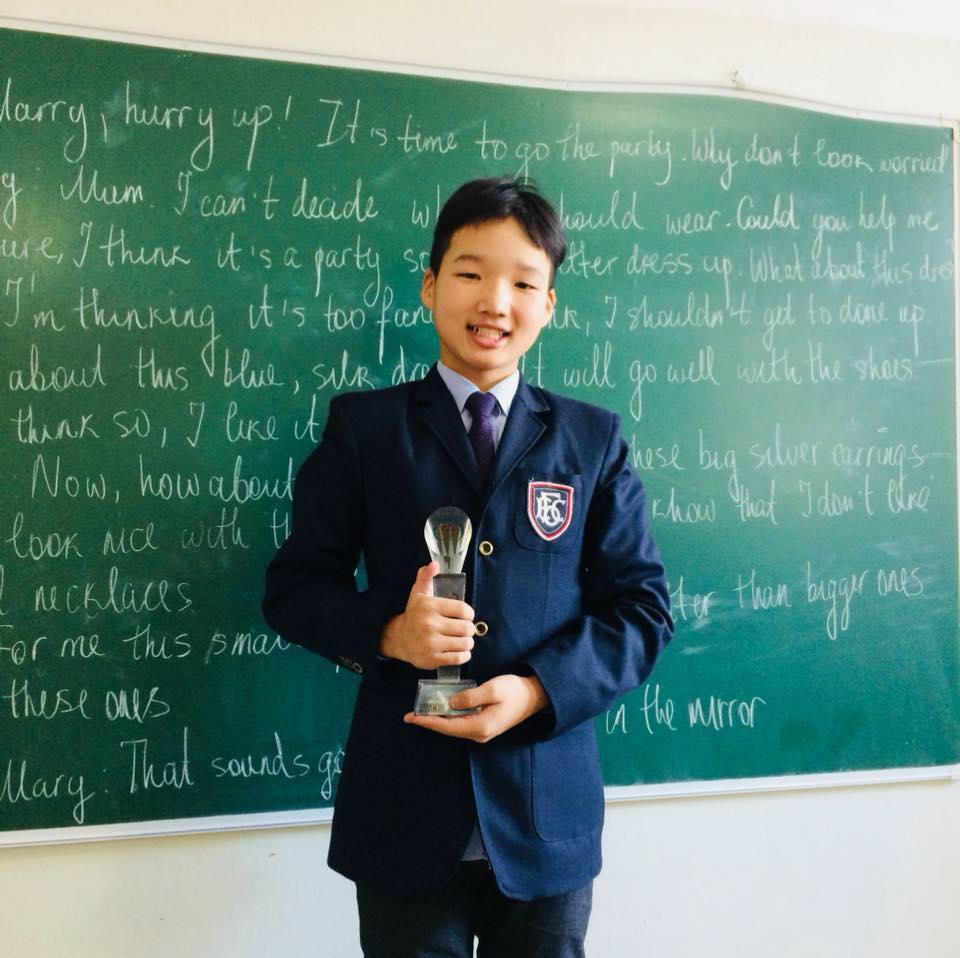 Marry, hurry up! It is time to go the party. Why don't look worried
Mum. I can't decide should wear. Could you help me
ure, I think it's a party dress up. What about this dress?
I'm thinking it's too I shouldn't get to done up
about this blue, silk will go well with the shoes
think so, I like it
these big silver earrings
Now, how about know that I don't like
look nice with
necklaces than bigger ones
For me this
these ones in the mirror
Mary: That sounds